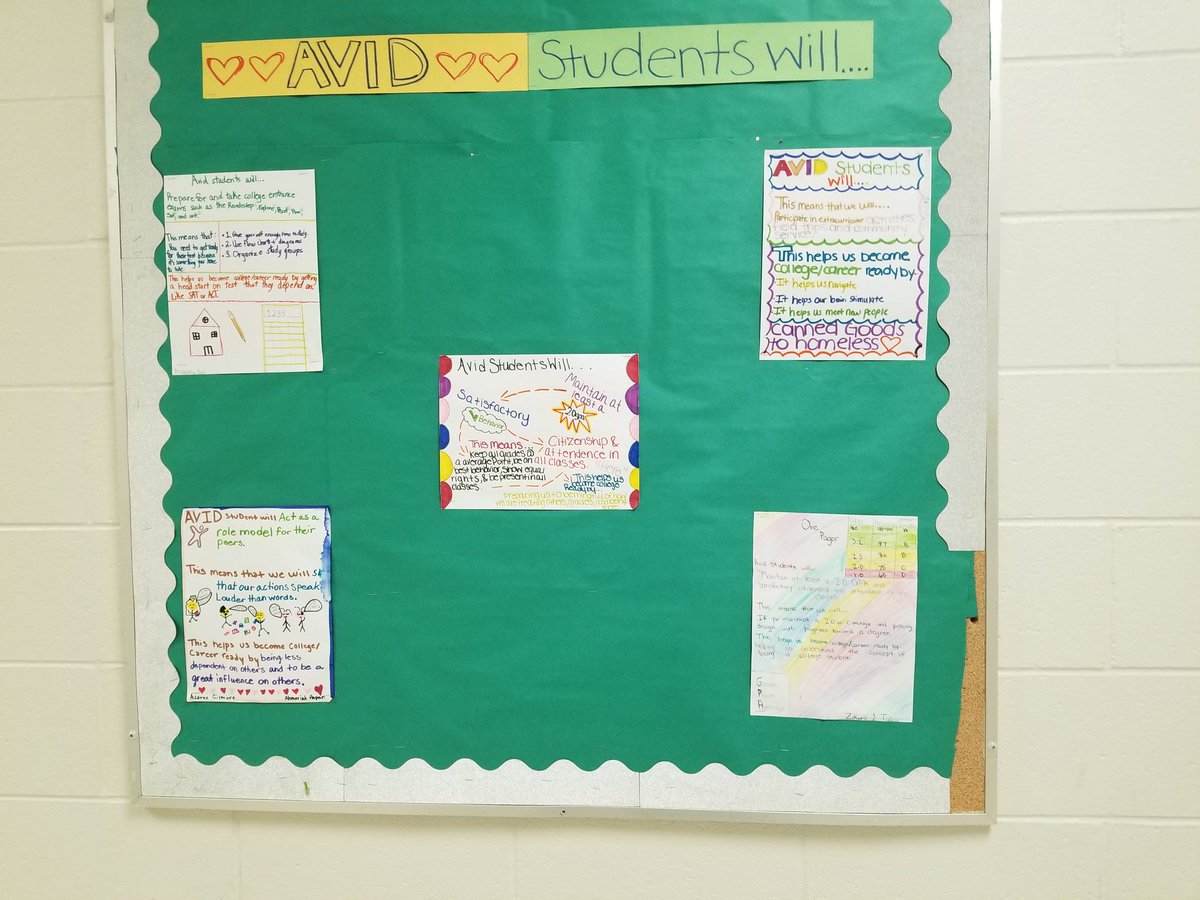 AVID Students Will....
Avid students will...
Prepare for and take college entrance
exams such as the Readistep, Explore, Psat, Plan,
Sat, and act.
This means that:
You need to get ready
for these test because
it's something you have
to take.
1. Give yourself enough time to study.
2. Use Flow Charts + diagrams
3. Organize study groups.
This helps us become college/career ready by getting
a head start on test that they depend on.
Like SAT or ACT.
1234
AVID Students
will...
This means that we will....
Participate in extracurricular activities,
field trips and community
service.
This helps us become
college/career ready by.
It helps us navigate
It helps our brain stimulate
It helps us meet new people
Canned Goods
to homeless
Avid Students Will...
Maintain at
least a
2.0 gpa
Satisfactory
Behavior
Citizenship &
attendence in
all classes.
This means...
keep all grades as
a average Point, be on
best behavior, show equal
rights, & be present in all
classes
This helps us
become college
Ready by...
Preparing us to be mindful of how
we are treating others, grades, and being
there
AVID Student will Act as a
role model for their
peers.
This means that we will
that our actions speak
Louder than words.
This helps us become College/
Career ready by being less
dependent on others and to be a
great influence on others.
One
Pager
3.2 87 B
2.5 80 B
2.0 75 C
1.0 65 D
Avid students will...
Maintain at least a 2.0 GPA and
Satisfactory citizenship and attendance in all
classes
This means that we will...
If you maintain a 2.0 or C average and passing
enough with progress toward a degree.
This helps us become college/career ready by
helping us understand the concept of
being a college student.
Grade
Point
Average